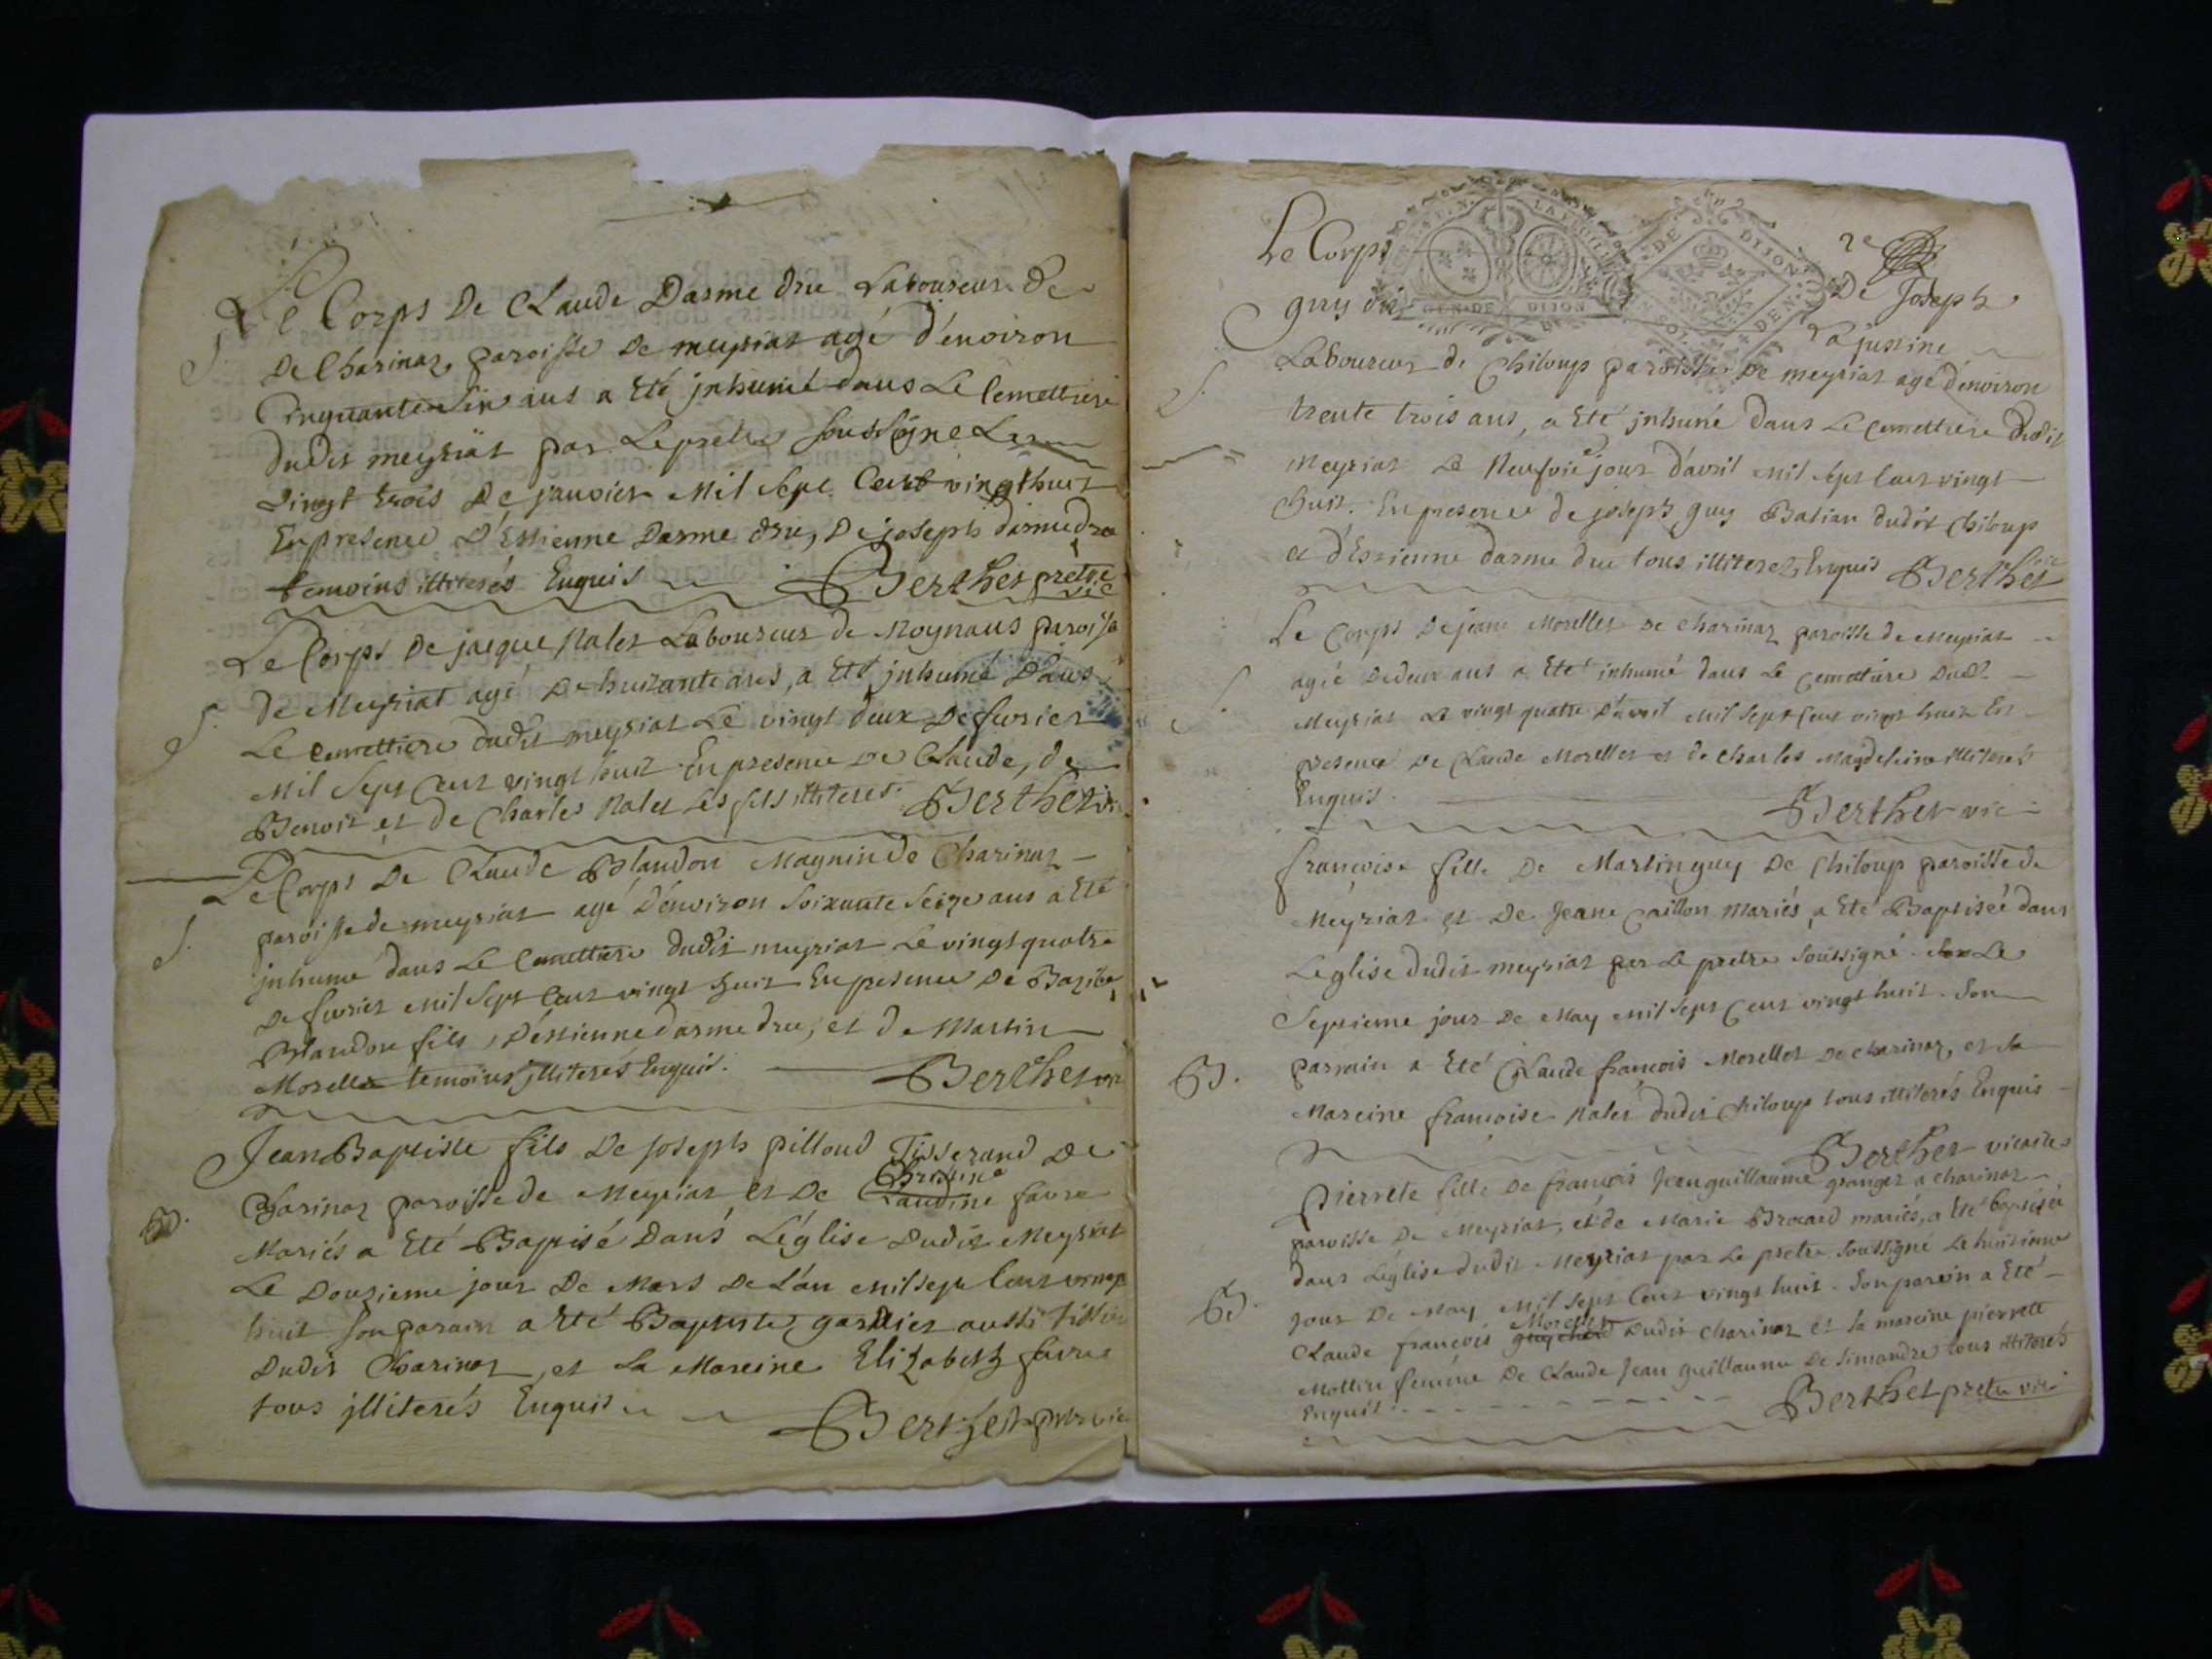 Le Corps De Claude Darme dru Laboureur De
De Charinaz, paroisse De meyriat agé d'énviron
Cinquante ans a Eté jnhumé dans Le Cemettiere
dudit meyriat par Le prêtre soussigné Le
vingt trois De janvier Mil sept Cent vingt huit
En presence D'Estienne Darme dru, De joseph darmedru
temoins illiterés Enquis Berthet pretre vic
Le Corps De jacque Nalet Laboureur de Noynans paroisse
S. de Meyriat agé De huitante ans, a Eté jnhumé Dans
Le Cemettiere dudit meyriat Le vingt deux De fevrier
Mil Sept Cent vingt huit En presence De Claude, de
Benoit et de Charles Nalet Ses fils illiterés. Berthet vic
Le Corps De Claude Blandon Magnin de Charinaz
S. paroisse de meyriat agé D'énviron Soixante Seize ans a Eté
jnhumé dans Le Cemettiere dudit meyriat Le vingt quatre
De fevrier Mil Sept Cent vingt huit En presence De
Blandon fils, D'éstienne darme dru, et de Martin
Morellet temoins jlliterés Enquis. Berthet vic
Jean Baptiste fils De joseph pilloud Tisserand De
Christine
B. Charinaz paroisse de Meyriat et De Claudine favre
Mariés a Eté Baptisé Dans L'église Dudit Meyriat
Le Douzieme jour De Mars De L'an Mil sept Cent vingt
huit Son parain a Eté Baptiste gardier aussi tissier
Dudit Charinaz, et La Mareine Elizabeth favre
tous jlliterés Enquis Berthet ptre vic
2e
Le Corps De Joseph
GEN. DE DIJON
DE DIJON
guy dit La justine
S. Laboureur de Chiloup paroisse De meyriat agé d'énviron
trente trois ans, a Eté jnhumé dans Le Cemettiere dudit
Meyriat Le Neufvie jour d'avril Mil Sept Cent vingt
huit. En presence de joseph guy Batian dudit Chiloup
et d'Estienne darme dru tous illiterez Enquis Berthet vic
Le Corps De jean Morellet De Charinaz paroisse de Meyriat
S. agée De deux ans a Eté inhumé dans Le Cemettiere Dudt
Meyriat Le vingt quatre D'avril Mil Sept Cent vingt huit En
presence De Claude Morellet et de Charles Magdeleine illiterés
Enquis. Berthet vic
françoise fille De Martin guy De Chiloup paroisse de
Meyriat et De Jeane Caillon Mariés, a Eté Baptisée dans
L'église dudit meyriat par Le pretre Soussigné Le
Septieme jour De May Mil Sept Cent vingt huit. Son
B. parrain a Eté Claude françois Morellet De charinaz, et Sa
Mareine françoise Nalet dudit Chiloup tous illiterés Enquis
Berthet vicaire
Pierrete fille De françois Jean guillaume granger a charinaz
paroisse De Meyriat, et de Marie Brocard mariés, a Eté baptisée
dans L'église dudit Meyriat par Le pretre Soussigné Le huitieme
B. jour De May Mil Sept Cent vingt huit. Son parein a Eté
Morellet
Claude françois Dudit Charinaz et Sa mareine pierrette
Mottin femme De Claude Jean guillaume De Simandre tous illiterés
Enquis Berthet pretre vic